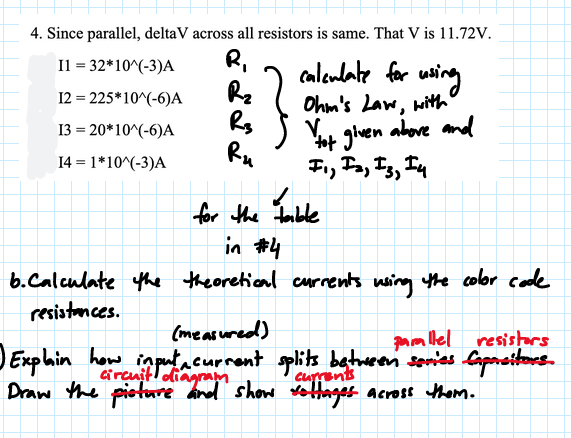 4. Since parallel, deltaV across all resistors is same. That V is 11.72V.
I1 = 32*10^(-3)A R₁
I2 = 225*10^(-6)A R₂
I3 = 20*10^(-6)A R₃
I4 = 1*10^(-3)A R₄
calculate for using
Ohm's Law, with
Vtot given above and
I₁, I₂, I₃, I₄
for the table
in #4
b. Calculate the theoretical currents using the color code
resistances.
(measured) parallel resistors
) Explain how input current splits between series Capacitors
circuit diagram currents
Draw the picture and show voltages across them.